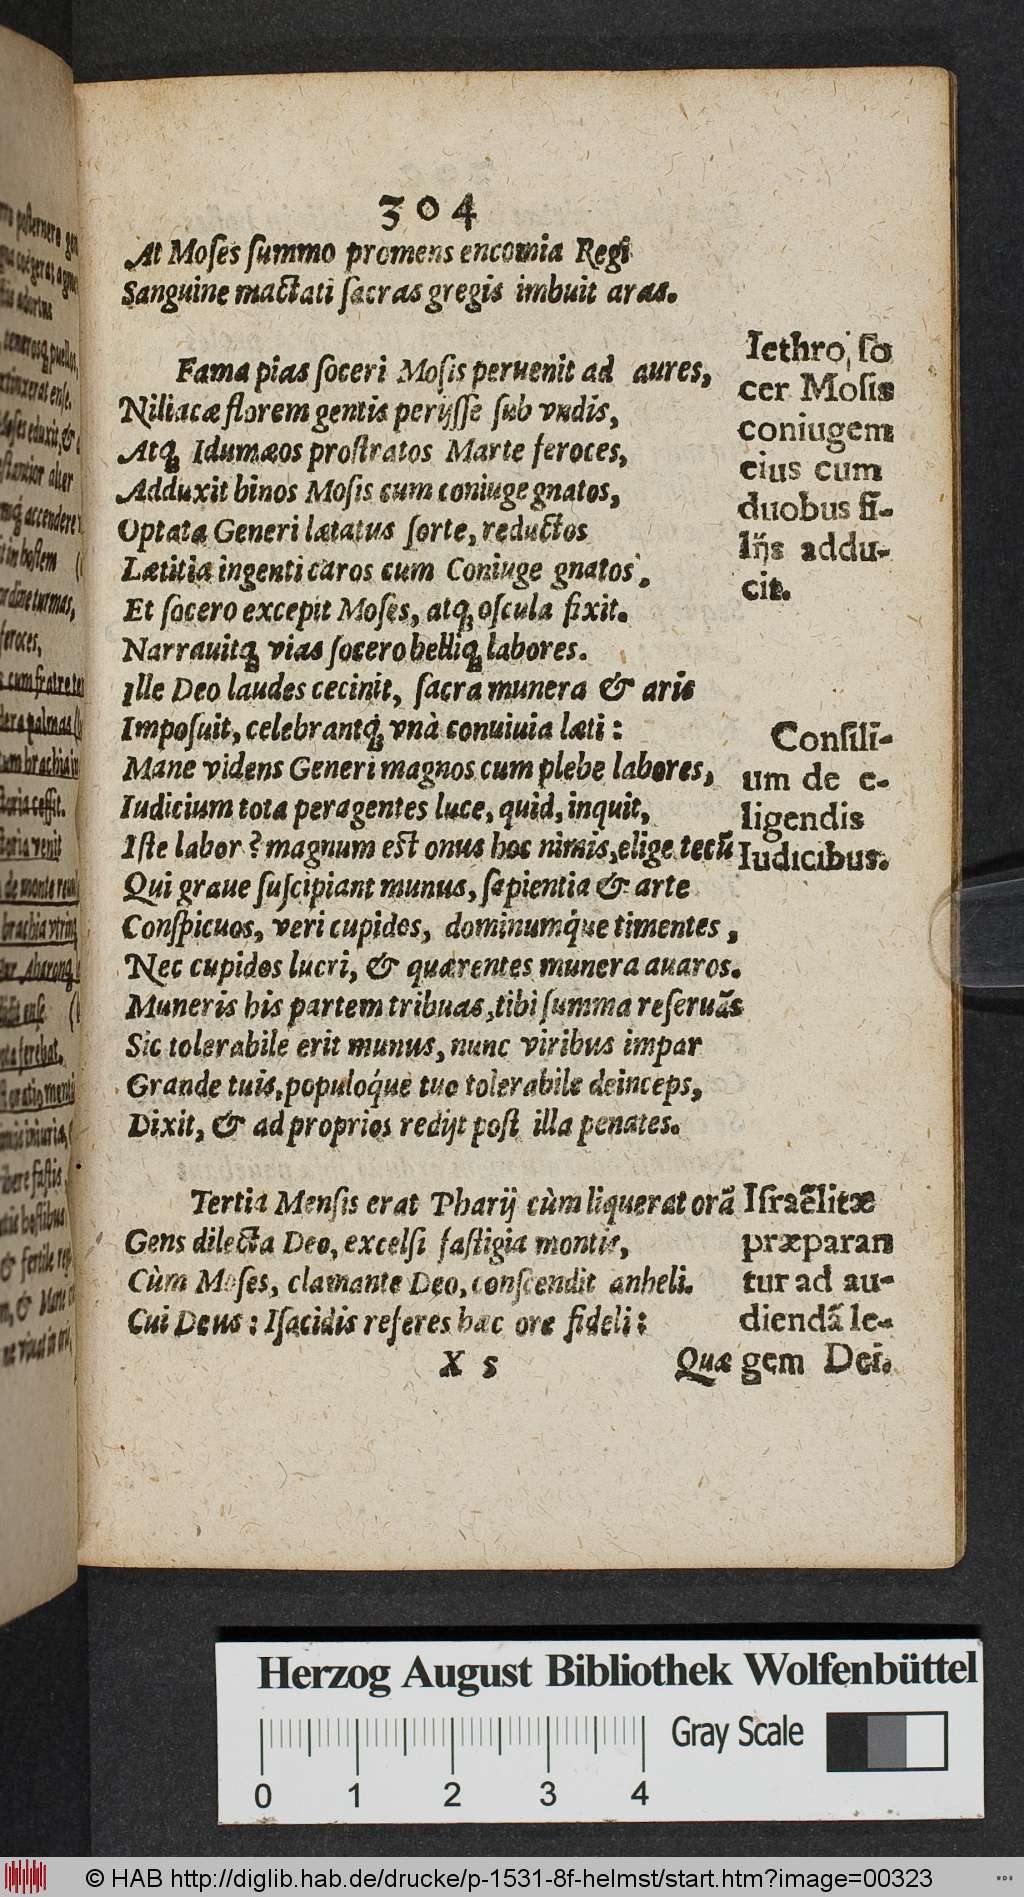 304
At Moſes ſummo promens encomia Regi
Sanguine mactati ſacras gregis imbuit aras.
Fama pias ſoceri Moſis peruenit ad aures,
Niliacæ florem gentis perijſſe ſub vndis,
Atq́ Idumæos proſtratos Marte feroces,
Adduxit binos Moſis cum coniuge gnatos,
Optata Generi lætatus ſorte, reductos
Lætitia ingenti caros cum Coniuge gnatos.
Et ſocero excepit Moſes, atq́ oſcula fixit.
Narrauitq́ vias ſocero belliq́ labores.
Ille Deo laudes cecinit, ſacra munera & aris
Impoſuit, celebrantq́ vnà conuiuia læti:
Mane videns Generi magnos cum plebe labores,
Iudicium tota peragentes luce, quid, inquit,
Iſte labor? magnum eſt onus hoc nimis, elige tecū
Qui graue ſuſcipiant munus, ſapientia & arte
Conſpicuos, veri cupidos, dominumq́ue timentes,
Nec cupidos lucri, & quærentes munera auaros.
Muneris his partem tribuas, tibi ſumma reſeruās
Sic tolerabile erit munus, nunc viribus impar
Grande tuis, populoq́ue tuo tolerabile deinceps,
Dixit, & ad proprios redijt poſt illa penates.
Iethro, ſo
cer Moſis
coniugem
eius cum
duobus fi-
lijs addu-
cit.
Conſili-
um de e-
ligendis
Iudicibus.
Tertia Menſis erat Pharij cùm liquerat orā
Gens dilecta Deo, excelſi faſtigia montis,
Cùm Moſes, clamante Deo, conſcendit anheli.
Cui Deus: Iſacidis referes hæc ore fideli:
Iſraëlitæ
præparan
tur ad au-
diendā le-
gem Dei.
X 5
Quæ
Herzog August Bibliothek Wolfenbüttel
Gray Scale
0 1 2 3 4
© HAB http://diglib.hab.de/drucke/p-1531-8f-helmst/start.htm?image=00323